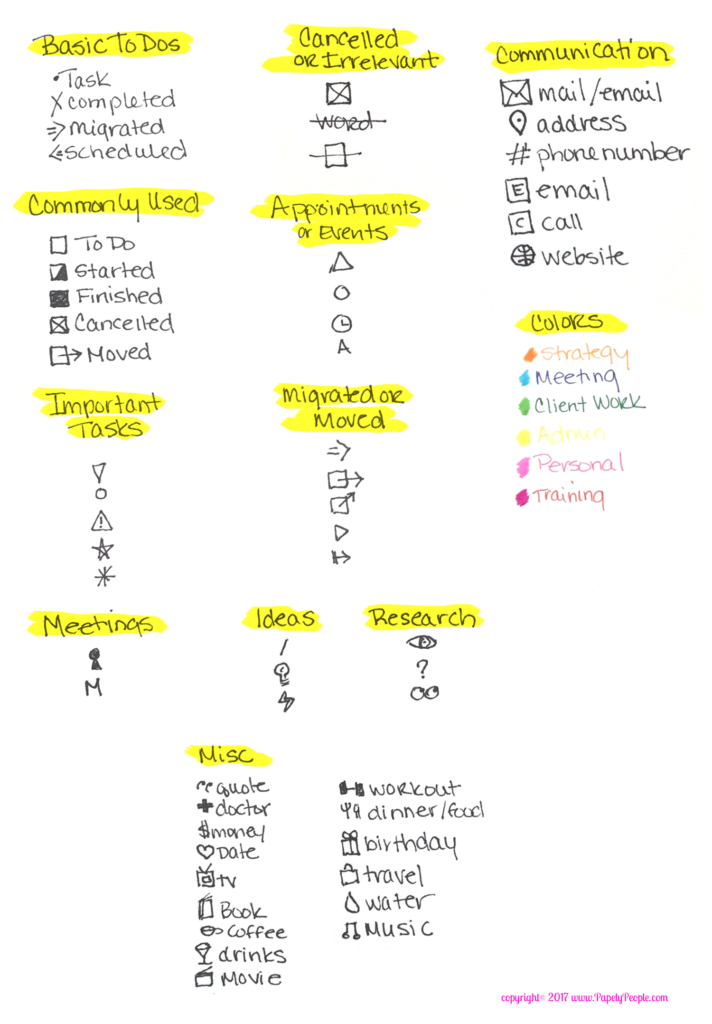 Basic To Dos
• Task
X completed
⇒ migrated
< scheduled
Cancelled
or Irrelevant
WORD
Communication
mail/email
address
# phone number
E email
C call
website
Commonly Used
To Do
Started
Finished
Cancelled
Moved
Appointments
or Events
A
Colors
Strategy
Meeting
Client Work
Admin
Personal
Training
Important
Tasks
!
*
Migrated or
Moved
Meetings
M
Ideas
/
Research
?
Misc
" quote
+ doctor
$ money
Date
tv
Book
Coffee
drinks
Movie
workout
dinner/food
birthday
travel
water
Music
copyright© 2017 www.PapelyPeople.com